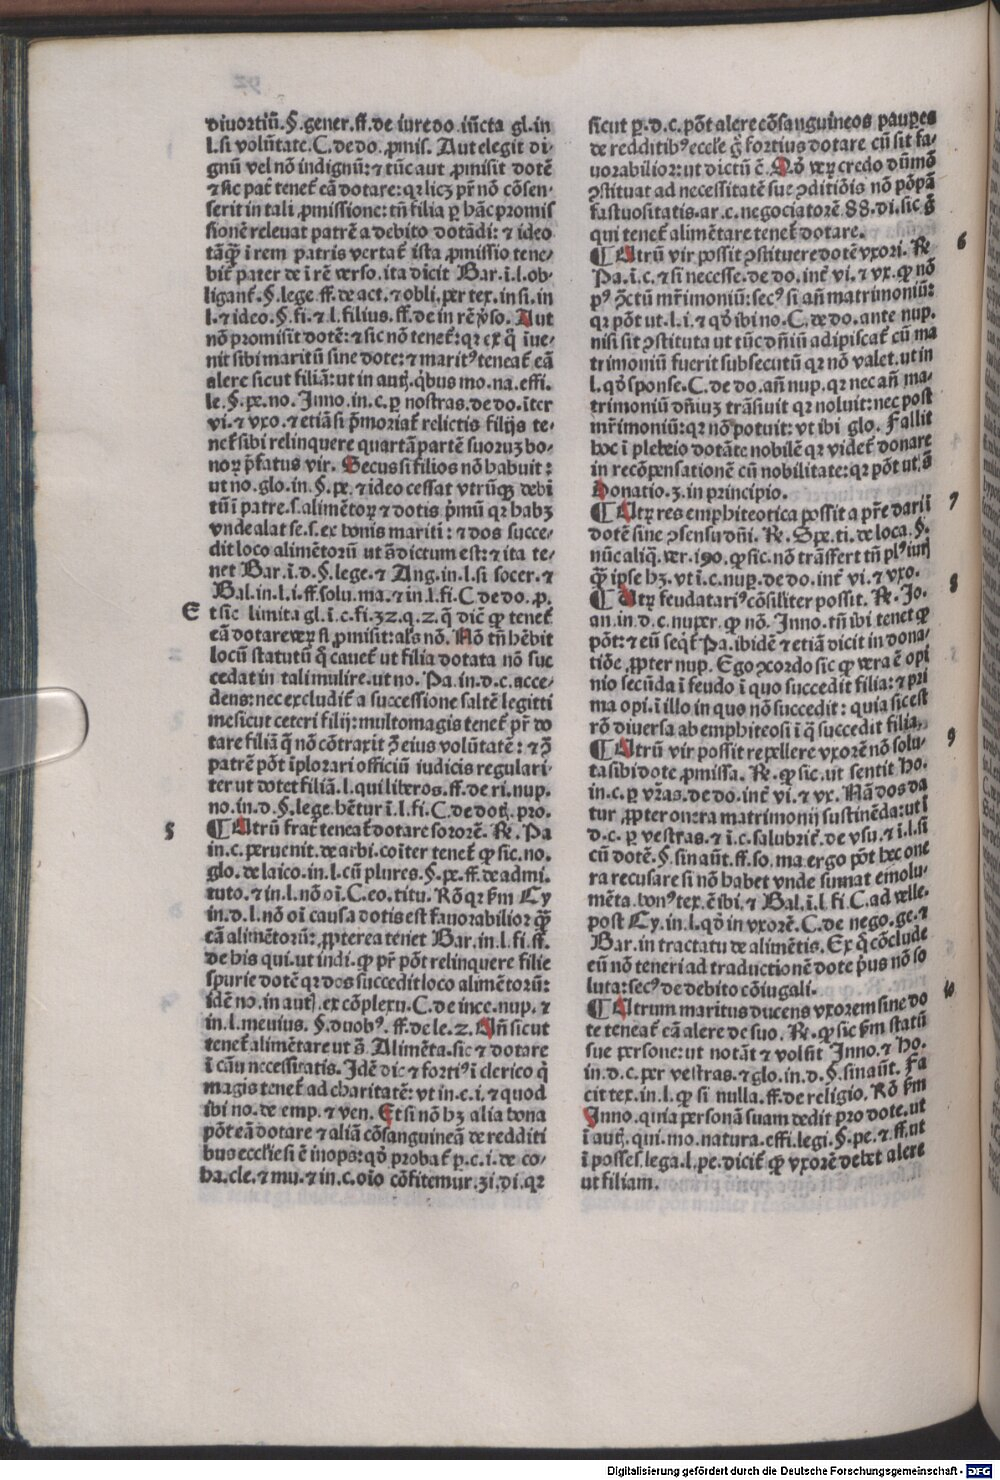 diuortiũ.§.gener.ff.de iure do.iũcta gl.in
l.si volũtate.C.de do.ꝓmis. Aut elegit di-
gnũ vel nõ indignũ:⁊ tũc aut ꝓmisit dotẽ
⁊ sic pat̃ tenet̃ eã dotare:qꝛ licꝫ pr̃ nõ cõsen-
serit in tali ꝓmissione:tñ filia ꝑ hãc promis
sionẽ releuat patrẽ a debito dotãdi:⁊ ideo
tãqꝫ̃ ĩ rem patris vertat̃ ista ꝓmissio tene-
bit̃ pater de ĩ rẽ verso.ita dicit Bar.ĩ.l.ob-
ligant̃.§.lege.ff.de act.⁊ obli.per tex.in si.in
l.⁊ ideo.§.fi.⁊ l.filius.ff.de in rẽ v̉so. Aut
nõ promisit dotẽ:⁊ sic nõ tenet̃:qꝛ ex q̃ ĩue-
nit sibi maritũ sine dote:⁊ maritꝰ teneat̃ eã
alere sicut filiã:ut in autꝭ.q̃bus mo.na.effi.
le.§.pe.no. Inno.in.c.ꝑ nostras.de do.ĩter
vi.⁊ vxo.⁊ etiã si p̃moriat̃ relictis filijs te-
net̃ sibi relinquere quartã partẽ suoruꝫ bo-
noꝝ p̃fatus vir. Secus si filios nõ habuit:
ut no.glo.in.§.pe.⁊ ideo cessat vtrũqꝫ debi
tũ ĩ patre.s.alimẽtoꝝ ⁊ dotis p̃mũ qꝛ habꝫ
vnde alat se.s.ex bonis mariti:⁊ dos succe-
dit loco alimẽtorũ ut s̃ dictum est:⁊ ita te-
net Bar.ĩ.d.§.lege.⁊ Ang.in.l.si socer.⁊
Bal.in.l.i.ff.solu.ma.⁊ in.l.fi.C.de do.ꝓ.
E
tsic limita gl.ĩ.c.fi.32.q.2.q̃ dic̃ ꝙ tenet̃
eã dotare veꝝ si ꝓmisit:als nõ. Nõ tñ hẽbit
locũ statutũ q̃ cauet̃ ut filia dotata nõ suc
cedat in tali mulire.ut no. Pa.in.d.c.acce-
dens:nec excludit̃ a successione saltẽ legitti
me sicut ceteri filij:multomagis tenet̃ pr̃ do
tare filiã q̃ nõ cõtraxit ↄ̃ eius volũtatẽ:⁊ ↄ̃
patrẽ põt ĩplorari officiũ iudicis regulari-
ter ut dotet filiã.l.qui liberos.ff.de ri.nup.
no.in.d.§.lege.bẽtur ĩ.l.fi.C.de dotꝭ.pro.
5
¶ Utrũ frat̃ teneat̃ dotare sororẽ. ℞. Pa
in.c.peruenit.de arbi.coĩter tenet̃ ꝙ sic.no.
glo.de laico.in.l.cũ plures.§.pe.ff.de admi.
tuto.⁊ in.l.nõ oĩ.C.eo.titu. Rõ qꝛ ẜm Cy
in.d.l.nõ oĩ causa dotis est fauorabilior qꝫ̃
cã alimẽtorũ:ꝓpterea tenet Bar.in.l.fi.ff.
de his qui.ut indi.ꝙ pr̃ põt relinquere filie
spurie dotẽ qꝛ dos succedit loco alimẽtorũ:
idẽ no.in autꝭ.ex cõplexu.C.de ince.nup.⁊
in.l.meuius.§.duobꝰ.ff.de le.2. Añ sicut
tenet̃ alimẽtare ut s̃. Alimẽta.sic ⁊ dotare
ĩ cãu necessitatis. Idẽ dic ⁊ fortiꝰ ĩ clerico q̃
magis tenet̃ ad charitatẽ:vt in.c.i.⁊ quod
ibi no.de emp.⁊ ven. Et si nõ hꝫ alia bona
põt eã dotare ⁊ aliã cõsanguineã de redditi
bus ecclesie si ẽ inops:qõ probat̃ ꝑ.c.i.de co-
ha.cle.⁊ mu.⁊ in.c.oĩo cõfitemur.3i.di.qꝛ
sicut ꝑ.d.c.põt alere cõsanguineos paupes
de redditibꝰ eccl̃e g̃ fortius dotare cũ sit fa-
uorabilior:ut dictũ ẽ. Qõ veꝝ credo dũmõ
ↄstituat ad necessitatẽ sue ↄditiõis nõ põpã
fastuositatis.ar.c.negociatorẽ 88.di.sic g̃
qui tenet̃ alimẽtare tenet̃ dotare.
6
¶ Utrũ vir possit ↄstituere dotẽ vxori. ℞.
Pa.ĩ.c.⁊ si necesse.de do.int̃ vi.⁊ vx.ꝙ nõ
pꝰ ↄ̃ctũ mr̃imoniũ:secꝰ si añ matrimoniũ:
qꝛ põt ut.l.i.⁊ qõ ibi no.C.de do.ante nup.
nisi sit ↄstituta ut tũc dñiũ adipiscat̃ cũ ma
trimoniũ fuerit subsecutũ qꝛ nõ valet.ut in
l.qõ sponse.C.de do.añ nup.qꝛ nec añ ma-
trimoniũ dñiuꝫ trãsiuit qꝛ noluit:nec post
mr̃imoniũ:qꝛ nõ potuit:vt ibi glo. Fallit
hoc ĩ plebeio dotãte nobilẽ qꝛ videt̃ donare
in recõpensationẽ cũ nobilitate:qꝛ põt ut.s̃
Donatio.3.in principio.
7
¶ Utꝝ res emphiteotica possit a pr̃e dari ĩ
dotẽ sine ↄsensu dñi. ℞. Spe.ti.de loca.§.
nũc aliq̃.ver.190.ꝙ sic.nõ trãsfert tñ plꝰ iurꝭ
qꝫ̃ ipse hꝫ.vt ĩ.c.nup.de do.int̃ vi.⁊ vxo.
8
¶ Utꝝ feudatariꝰ cõsiliter possit. ℞. Jo.
an.in.d.c.nuper.ꝙ nõ. Inno.tñ ibi tenet ꝙ
põt:⁊ eũ seq̃t̃ Pa.ibidẽ ⁊ etiã dicit in dona-
tiõe ꝓpter nup. Ego ↄcordo sic ꝙ vera ẽ opi
nio secũda ĩ feudo ĩ quo succedit filia:⁊ pri
ma opi.ĩ illo in quo nõ succedit:quia sic est
rõ diuersa ab emphiteosi ĩ q̃ succedit filia.
9
¶ Utrũ vir possit repellere vxorẽ nõ solu-
ta sibi dote ꝓmissa. ℞. ꝙ sic.ut sentit Ho.
in.c.ꝑ vr̃as.de do.int̃ vi.⁊ vx. Nã dos da
tur ꝓpter onera matrimonij sustinẽda:ut ĩ
d.c.ꝑ vestras.⁊ ĩ.c.salubrit̃.de vsu.⁊ ĩ.l.si
cũ dotẽ.§.sin aũt.ff.so.ma.ergo põt hec one
ra recusare si nõ habet vnde sumat emolu-
mẽta.bonꝰ tex.ẽ ibi.⁊ Bal.ĩ.l.fi.C.ad velle.
post Cy.in.l.qõ in vxorẽ.C.de nego.ge.⁊
Bar.in tractatu de alimẽtis. Ex q̃ cõclude
eũ nõ teneri ad traductionẽ dote p̃us nõ so
luta:secꝰ de debito cõiugali.
10
¶ Utrum maritus ducens vxorem sine do
te teneat̃ eã alere de suo. ℞. ꝙ sic ẜm statũ
sue persone:ut notãt ⁊ volũt Inno.⁊ Ho.
in.d.c.per vestras.⁊ glo.in.d.§.sin aũt. Fa
cit tex.in.l.ꝙ si nulla.ff.de religio. Rõ ẜm
Inno.quia personã suam dedit pro dote.ut
ĩ autꝭ.qui.mo.natura.effi.legi.§.pe.⁊ ff.ut
ĩ posses.lega.l.pe.dicit̃ ꝙ vxorẽ debet alere
ut filiam.
Digitalisierung gefördert durch die Deutsche Forschungsgemeinschaft - DFG